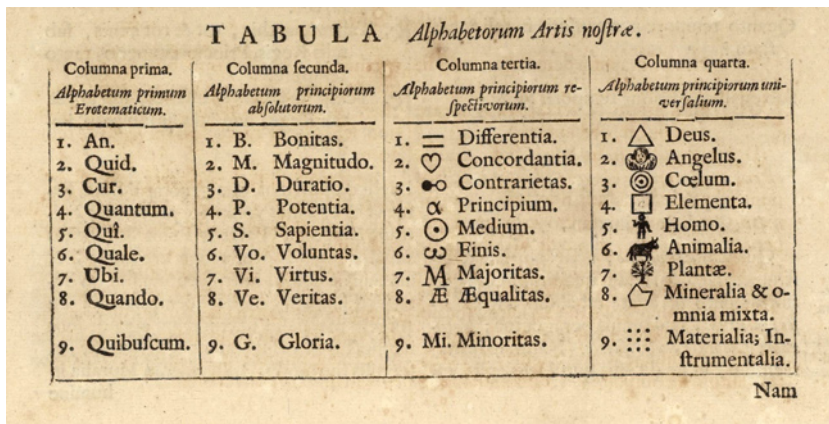 TABULA Alphabetorum Artis noſtræ.
Columna prima.
Alphabetum primum
Erotematicum.
1. An.
2. Quid.
3. Cur.
4. Quantum.
5. Quî.
6. Quale.
7. Ubi.
8. Quando.
9. Quibuſcum.
Columna ſecunda.
Alphabetum principiorum
abſolutorum.
1. B. Bonitas.
2. M. Magnitudo.
3. D. Duratio.
4. P. Potentia.
5. S. Sapientia.
6. Vo. Voluntas.
7. Vi. Virtus.
8. Ve. Veritas.
9. G. Gloria.
Columna tertia.
Alphabetum principiorum re-
ſpectivorum.
1. = Differentia.
2. ♡ Concordantia.
3. Contrarietas.
4. α Principium.
5. ☉ Medium.
6. ω Finis.
7. M Majoritas.
8. Æ Æqualitas.
9. Mi. Minoritas.
Columna quarta.
Alphabetum principiorum uni-
verſalium.
1. △ Deus.
2. Angelus.
3. ◎ Cœlum.
4. □ Elementa.
5. Homo.
6. Animalia.
7. Plantæ.
8. Mineralia & o-
mnia mixta.
9. Materialia; In-
ſtrumentalia.
Nam